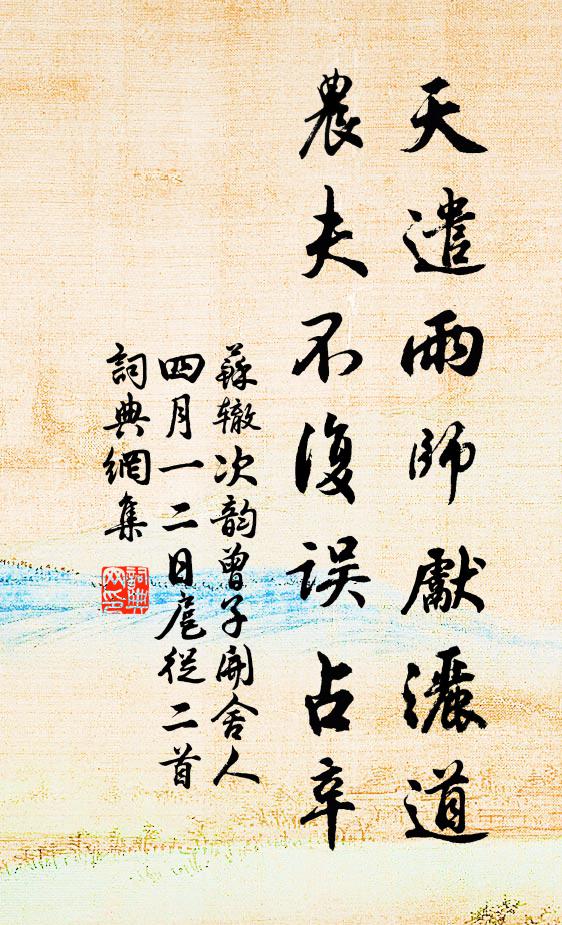 天遣雨師獻灑道
農夫不復误占辛
蘇辙次韵曾子開舍人
四月一二日扈從二首
詞典網集
詞典网印